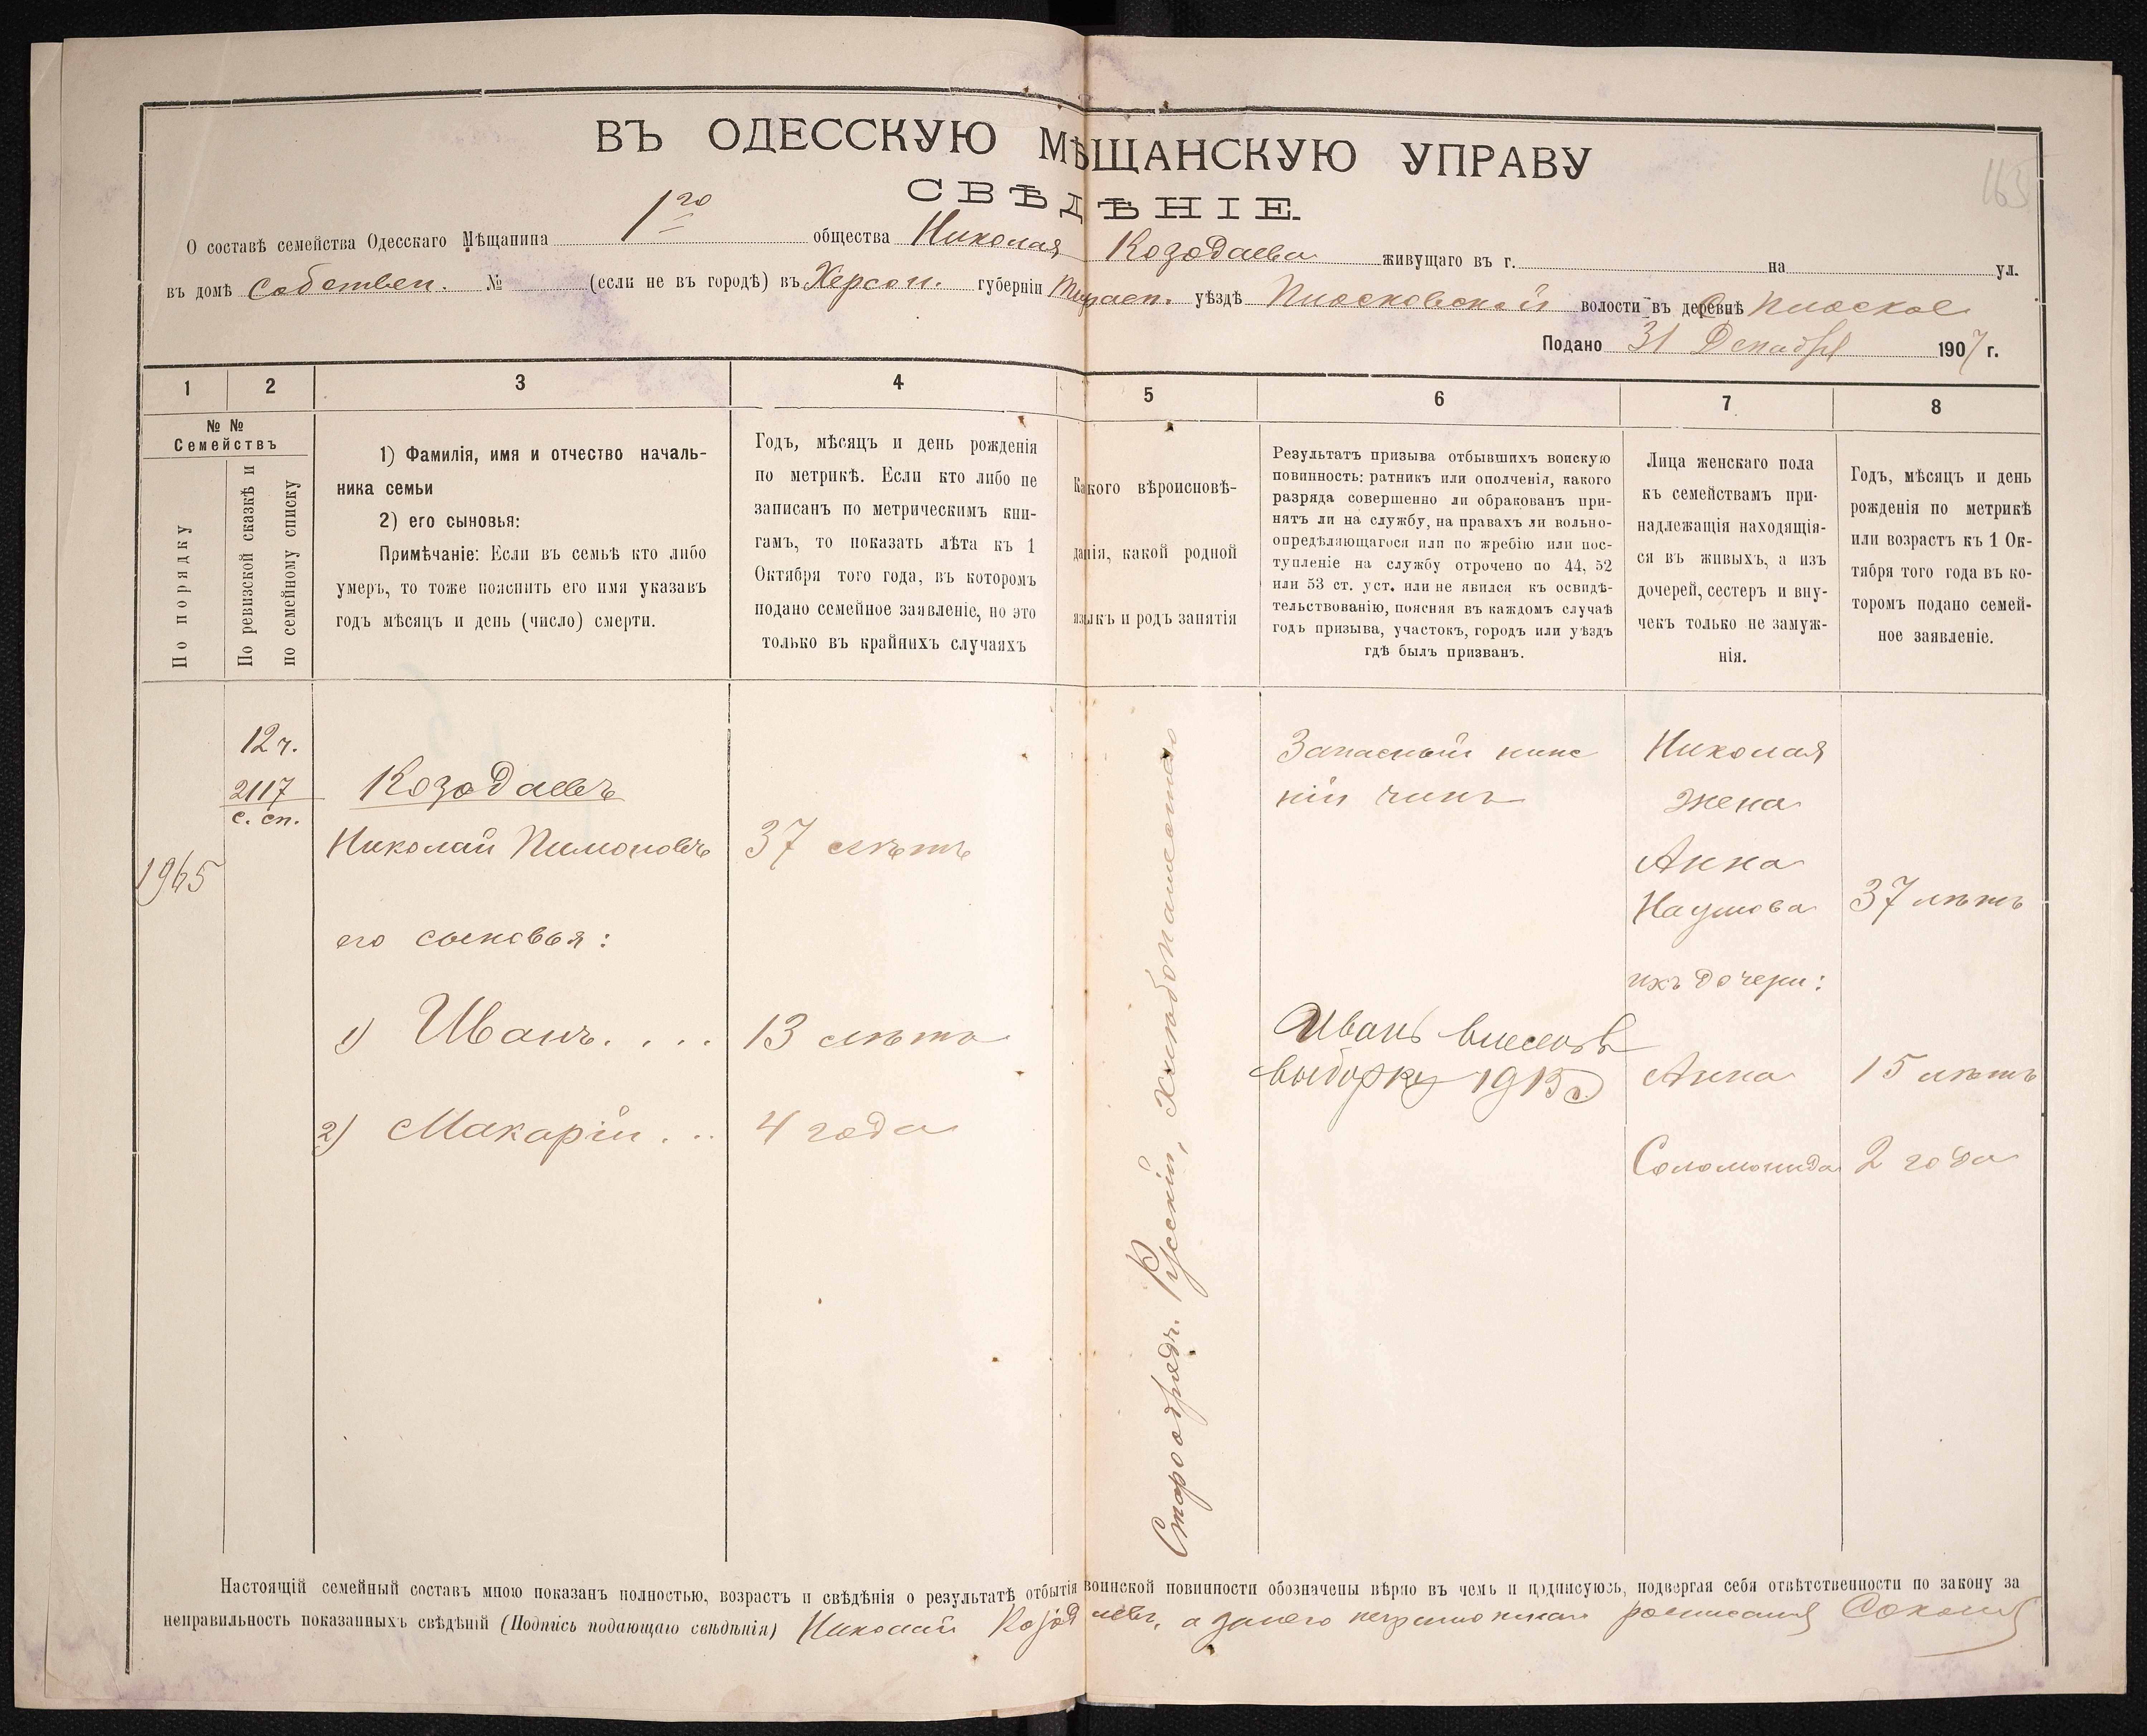 165
ВЪ ОДЕССКУЮ МѢЩАНСКУЮ УПРАВУ
СВѢДѢНІЕ.
О составѣ семейства Одесскаго Мѣщанина 1го общества Николая Козодаева живущаго въ г. на ул.
въ домѣ собствен. № (если не въ городѣ) въ Херсон. губерніи Тирасп. уѣздѣ Плосковской волости въ деревнѣ С. Плоское
Подано 31 Декабря 1907 г.
1 2 3 4 5 6 7 8
№ №
Семействъ
По порядку
По ревизской сказкѣ и
по семейному списку
1) Фамилія, имя и отчество началь-
ника семьи
2) его сыновья:
Примѣчаніе: Если въ семьѣ кто либо
умеръ, то тоже пояснить его имя указавъ
годъ мѣсяцъ и день (число) смерти.
Годъ, мѣсяцъ и день рожденія
по метрикѣ. Если кто либо не
записанъ по метрическимъ кни-
гамъ, то показать лѣта къ 1
Октября того года, въ которомъ
подано семейное заявленіе, но это
только въ крайнихъ случаяхъ
Какого вѣроисповѣ-
данія, какой родной
языкъ и родъ занятія
Результатъ призыва отбывшихъ воискую
повинность: ратникъ или ополченія, какого
разряда совершенно ли обракованъ при-
нятъ ли на службу, на правахъ ли вольно-
опредѣляющагося или по жребію или пос-
тупленіе на службу отрочено по 44, 52
или 53 ст. уст. или не явился къ освидѣ-
тельствованію, поясняя въ каждомъ случаѣ
годъ призыва, участокъ, городъ или уѣздъ
гдѣ былъ призванъ.
Лица женскаго пола
къ семействамъ при-
надлежащія находящія-
ся въ живыхъ, а изъ
дочерей, сестеръ и вну-
чекъ только не замуж-
нія.
Годъ, мѣсяцъ и день
рожденія по метрикѣ
или возрастъ къ 1 Ок-
тября того года въ ко-
торомъ подано семей-
ное заявленіе.
1965
12 ч.
2117
с. сп.
Козодаевъ
Николай Пимоновъ
37 лѣтъ
его сыновья:
1) Иванъ. . . .
13 лѣтъ
2) Макарій. . .
4 года
Старообрядч. Русскій, хлѣбопашество
Запасный ниж
ній чинъ
Иванъ внесенъ в
выборку 1915 г.
Николая
жена
Анна
Наумова
37 лѣтъ
ихъ дочери:
Анна
15 лѣтъ
Соломонида
2 года
Настоящій семейный составъ мною показанъ полностью, возрастъ и свѣдѣнія о результатѣ отбытія воинской повинности обозначены вѣрно въ чемъ и подписуюсь, подвергая себя отвѣтственности по закону за
неправильность показанныхъ свѣдѣній (Подпись подающаго свѣдѣнія) Николай Козодаевъ, а за него неграмотнаго росписался